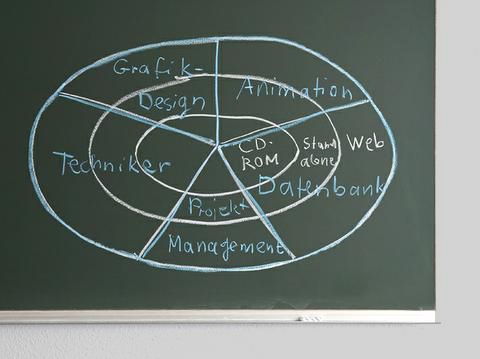 Grafik-
Design
Animation
Techniker
CD-
ROM
Stand
alone
Web
Datenbank
Projekt
Management